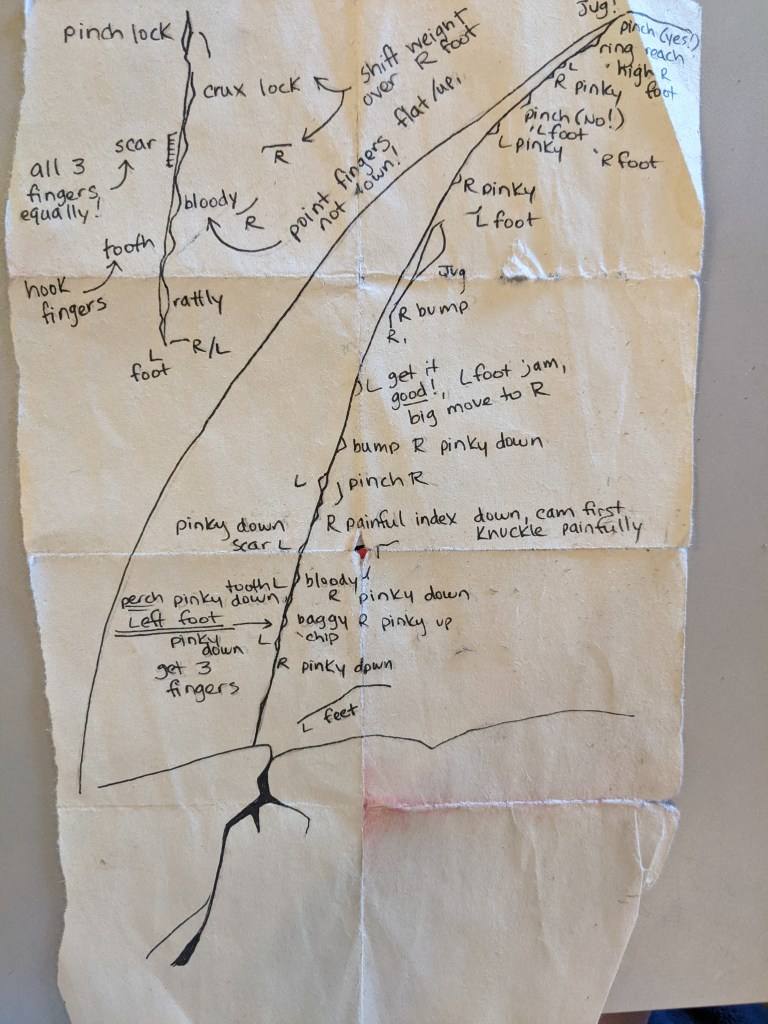 pinch lock
crux lock
shift weight
over R foot
R
scar
all 3
fingers
equally!
bloody
R
point fingers flat/up,
not down!
tooth
hook
fingers
rattly
L
foot
R/L
Jug!
pinch (yes!)
ring reach
high R
foot
L
R pinky
pinch (No!)
L foot
L pinky
R foot
R pinky
L foot
Jug
R bump
R
L get it
good!, L foot jam,
big move to R
bump R pinky down
L
pinch R
R painful index down, cam first
knuckle painfully
pinky down
scar L
tooth L
bloody
perch pinky down
R pinky down
Left foot
baggy R pinky up
chip
pinky
down
L
get 3
fingers
R pinky down
L feet